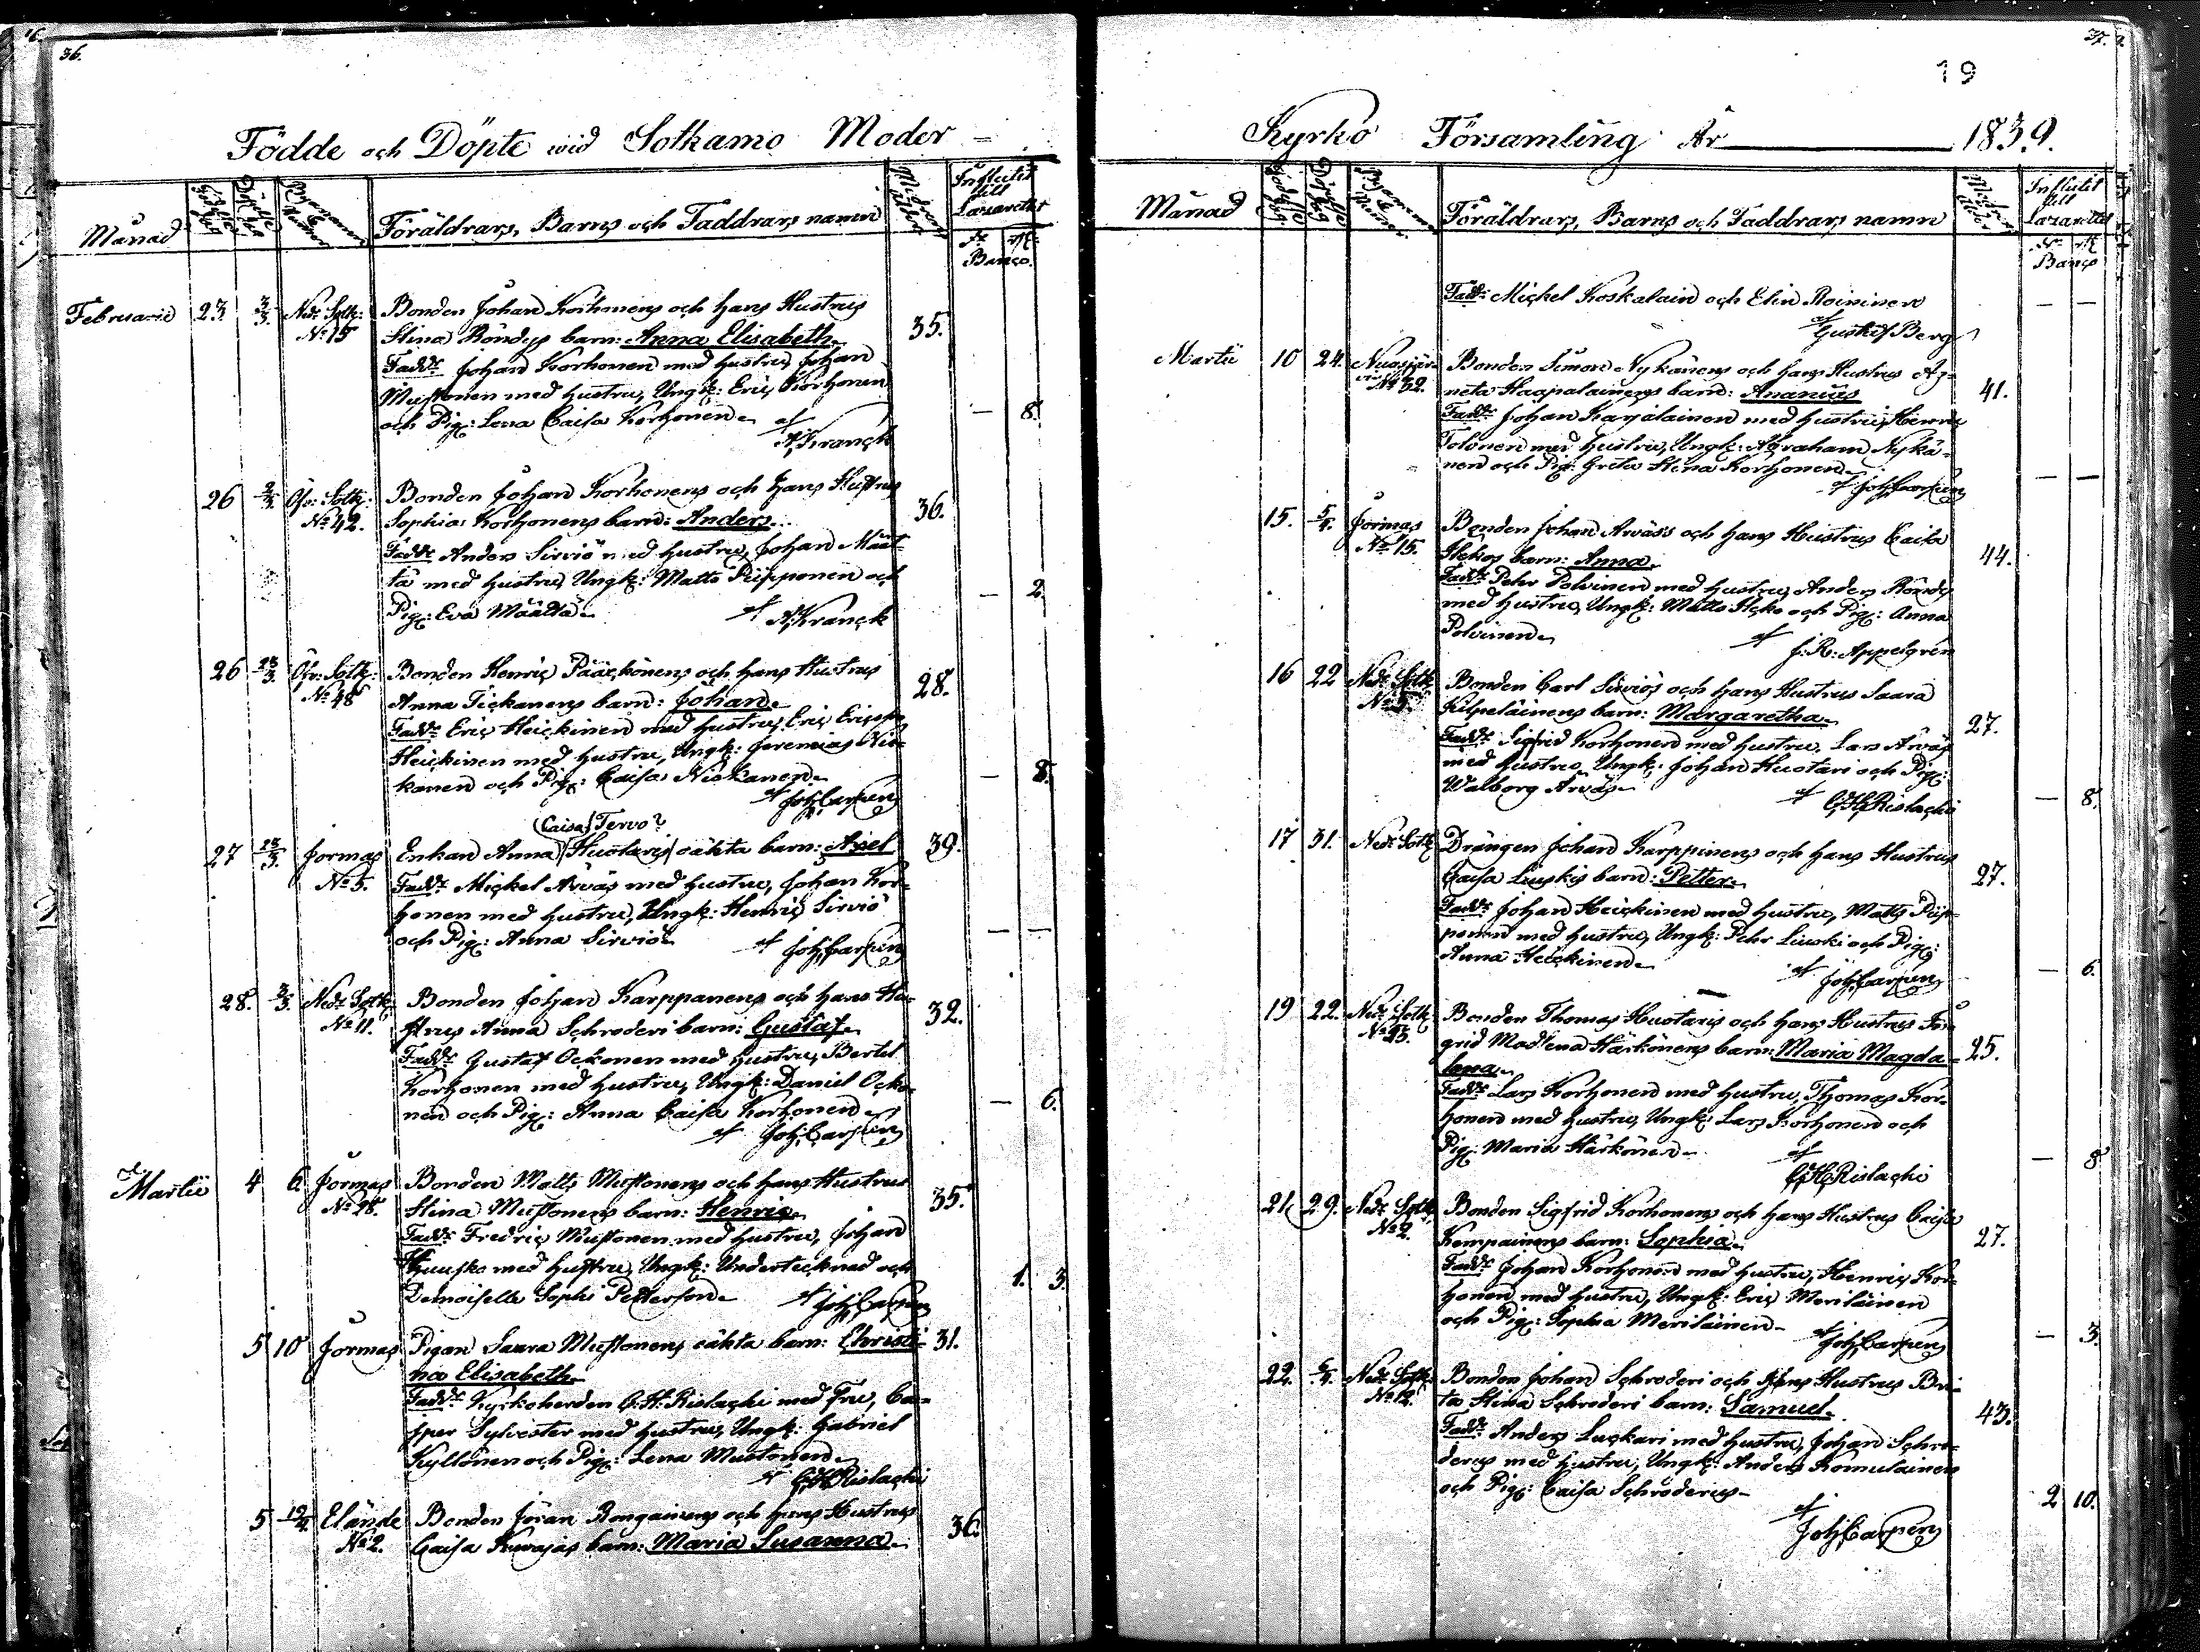 36.
Födde och Döpte wid Sotkamo Moder=
Månad
Föräldrars, Barns och Faddrars namn
Influtit till Lazarettet
Banco.
Februarii 23 3/3. Ned: Sotk: No 15 Bonden Johan Korhonens och hans Hustrus 35.
Stina Röndys barn: Anna Elisabeth
Fadd: Johan Korhonen med hustru, Johan
Mustonen med hustru, Ungk: Eric Korhonen
och Pig: Lena Caisa Korhonen — 8.
af A. Kranck
26 Öfv: Sotk: No 42. Bonden Johan Korhonens och hans Hustrus 36.
Sophia Korhonens barn: Anders
Fadd: Anders Sirviö med hustru, Johan Määt-
tä med hustru, Ungk: Matts Piipponen och — 2.
Pig: Eva Määttä af A. Kranck
26 Öfv: Sotk: No 48 Bonden Henric Pääckönens och hans Hustrus 28.
Anna Tickanens barn: Johan
Fadd: Eric Heickinen med hustru, Eric Ericsson
Heickinen med hustru, Ungk: Jeremias Nis-
kanen och Pig: Caisa Niskanen — 8.
af Joh. Carpen
(Caisa) Tervo?
27 Jormas No 5. Enkan Anna Huotaris oäkta barn: Axel 39.
Fadd: Mickel Arväs med hustru, Johan Kor-
honen med hustru, Ungk: Henric Sirviö
och Pig: Anna Sirviö — —
af Joh. Carpen
28. 3/3. Ned: Sotk: No 11. Bonden Johan Karppanens och hans Hu- 32.
strus Anna Schroderi barn: Gustaf
Fadd: Gustaf Ockonen med hustru, Bertel
Korhonen med hustru, Ungk: Daniel Ocko-
nen och Pig: Anna Caisa Korhonen — 6.
af Joh. Carpen
Martii 4 6 Jormas No 28. Bonden Matts Mustonens och hans Hustrus 35.
Stina Mustonens barn: Henric
Fadd: Fredric Mustonen med hustru, Johan
Huusko med hustru, Ungk: Undertecknad och 1. 3.
Demoiselle Sophi Petterson
af Joh. Carpen
5 10 Jormas Pigan Saara Mustonens oäkta barn: Christi- 31.
na Elisabeth
Fadd: Kyrkoherden C. H. Rislachi med Fru, Ca-
sper Sylvester med hustru, Ungk: Gabriel
Kyllönen och Pig: Lena Mustonen
af C. H. Rislachi
5 Elände No 2. Bonden Jöran Rongainens och hans Hustrus 36.
Caisa Kuvajas barn: Maria Susanna
37.
19
Kyrko Församling År 1839.
Månad
Föräldrars, Barns och Faddrars namn
Influtit till Lazarettet
Banco
Fadd: Mickel Koskalain och Elin Roininen — —
af Gustaf Berg
Martii 10 24. Nuasjärvi No 32. Bonden Simon Nykänens och hans Hustrus Ag- 41.
neta Haapalainens barn: Ananias
Fadd: Johan Karjalainen med hustru, Henric
Tolonen med hustru, Ungk: Abraham Nykä-
nen och Pig: Greta Stina Korhonen — —
af Joh. Carpen
15. 5/4. Jormas No 15. Bonden Johan Arväs's och hans Hustrus Caisa 44.
Heckos barn: Anna
Fadd: Pehr Polvinen med hustru, Anders Röndy
med hustru, Ungk: Matts Hecko och Pig: Anna
Polvinen
af J. R. Appelgrén
16 22 Ned: Sotk: Bonden Carl Sirviös och hans Hustrus Saara 27.
Kilpeläinens barn: Margaretha
Fadd: Sigfrid Korhonen med hustru, Lars Arväs
med hustru, Ungk: Johan Huotari och Pig:
Walborg Arväs — 8.
af C. H. Rislachi
17 31. Ned: Sotk Drängen Johan Karppinens och hans Hustrus 27.
Caisa Liuskis barn: Petter
Fadd: Johan Heickinen med hustru, Matts Piip-
ponen med hustru, Ungk: Pehr Liuski och Pig:
Anna Heickinen — 6.
af Joh. Carpen
19 22. Ned: Sotk Bonden Thomas Huotaris och hans Hustrus In-
grid Madlena Härkönens barn: Maria Magda- 25.
lena
Fadd: Lars Korhonen med hustru, Thomas Kor-
honen med hustru, Ungk: Lars Korhonen och
Pig: Maria Härkönen — 8
af C. H. Rislachi
21 29. Ned: Sotk No 2. Bonden Sigfrid Korhonens och hans Hustrus Caisa 27.
Kempainens barn: Sophia
Fadd: Johan Korhonen med hustru, Henric Kor-
honen med hustru, Ungk: Eric Meriläinen
och Pig: Sophia Meriläinen — 3.
af Joh. Carpen
22. Ned: Sotk No 12. Bonden Johan Schroderi och hans Hustrus Bri-
ta Stina Schroderi barn: Samuel 43.
Fadd: Anders Luckari med hustru, Johan Schro-
derus med hustru, Ungk: Anders Komulainen
och Pig: Caisa Schroderus 2 10.
af Joh. Carpen